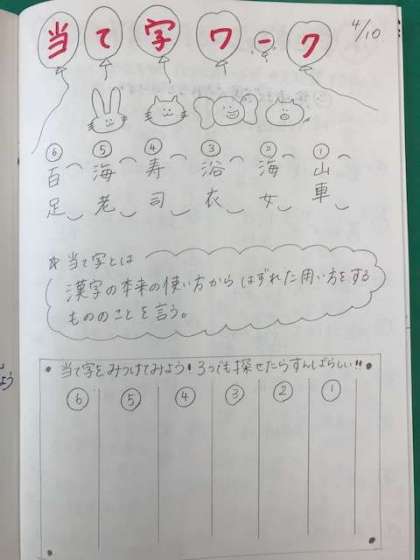 当て字ワーク
4/10
① 山車
② 海女
③ 浴衣
④ 寿司
⑤ 海老
⑥ 百足
＊当て字とは
漢字の本来の使い方からはずれた用い方をする
もののことを言う。
当て字をみつけてみよう！3つでも探せたらすんばらしい!!
① ② ③ ④ ⑤ ⑥